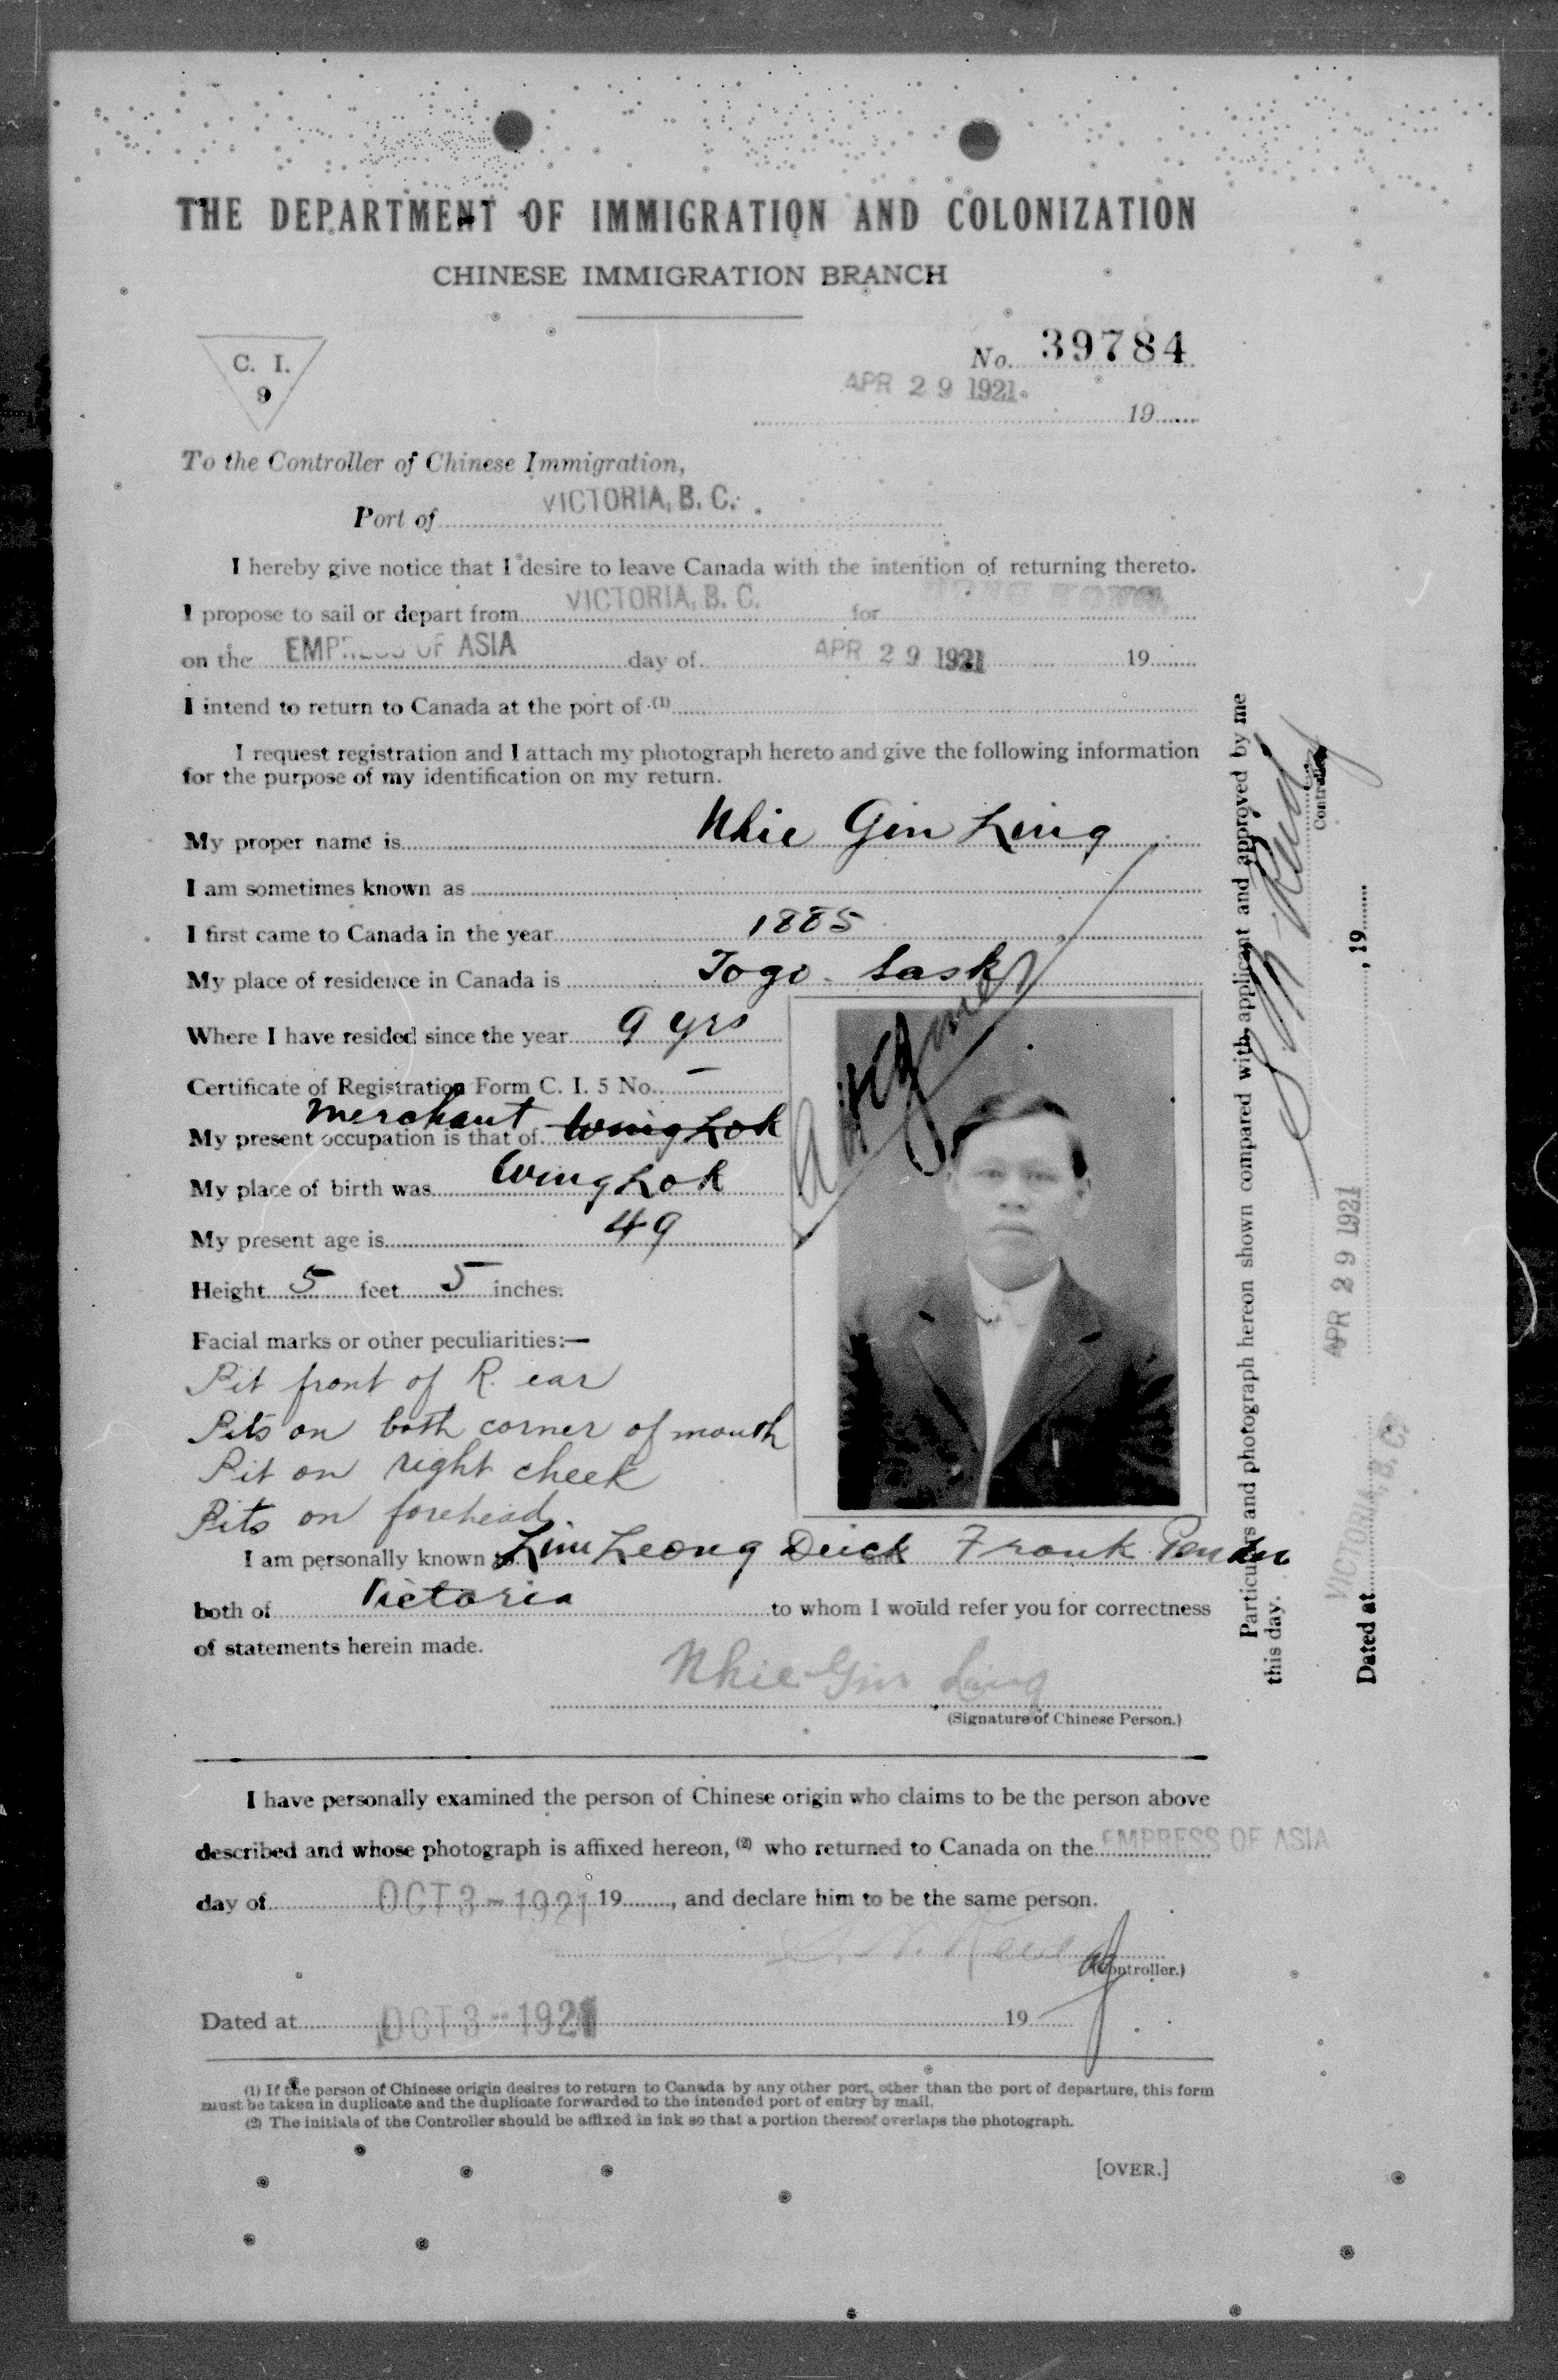 THE DEPARTMENT OF IMMIGRATION AND COLONIZATION
CHINESE IMMIGRATION BRANCH
C. I.
9
No. 39784
APR 29 1921
19
To the Controller of Chinese Immigration,
Port of VICTORIA, B. C.
I hereby give notice that I desire to leave Canada with the intention of returning thereto.
I propose to sail or depart from VICTORIA, B. C. for HONG KONG
on the EMPRESS OF ASIA day of APR 29 1921 19
I intend to return to Canada at the port of (1)
I request registration and I attach my photograph hereto and give the following information
for the purpose of my identification on my return.
My proper name is Nhie Gin Ling
I am sometimes known as
I first came to Canada in the year 1885
My place of residence in Canada is Togo Sask
Where I have resided since the year 9 yrs
Certificate of Registration Form C. I. 5 No. –
merchant
My present occupation is that of Wing Lok
My place of birth was Wing Lok
My present age is 49
Height 5 feet 5 inches.
Facial marks or other peculiarities:—
Pit front of R. ear
Pits on both corner of mouth
Pit on right cheek
Pits on forehead
I am personally known to Lim Leong Deick and Frank
both of Victoria to whom I would refer you for correctness
of statements herein made.
Nhie Gin Ling
(Signature of Chinese Person.)
I have personally examined the person of Chinese origin who claims to be the person above
described and whose photograph is affixed hereon, (2) who returned to Canada on the EMPRESS OF ASIA
day of OCT 3 - 1921 19, and declare him to be the same person.
(Controller.)
Dated at OCT 3 - 1921 19
(1) If the person of Chinese origin desires to return to Canada by any other port, other than the port of departure, this form
must be taken in duplicate and the duplicate forwarded to the intended port of entry by mail.
(2) The initials of the Controller should be affixed in ink so that a portion thereof overlaps the photograph.
[OVER.]
Particulars and photograph hereon shown compared with applicant and approved by me
this day.
Controller
APR 29 1921
VICTORIA, B. C.
Dated at , 19